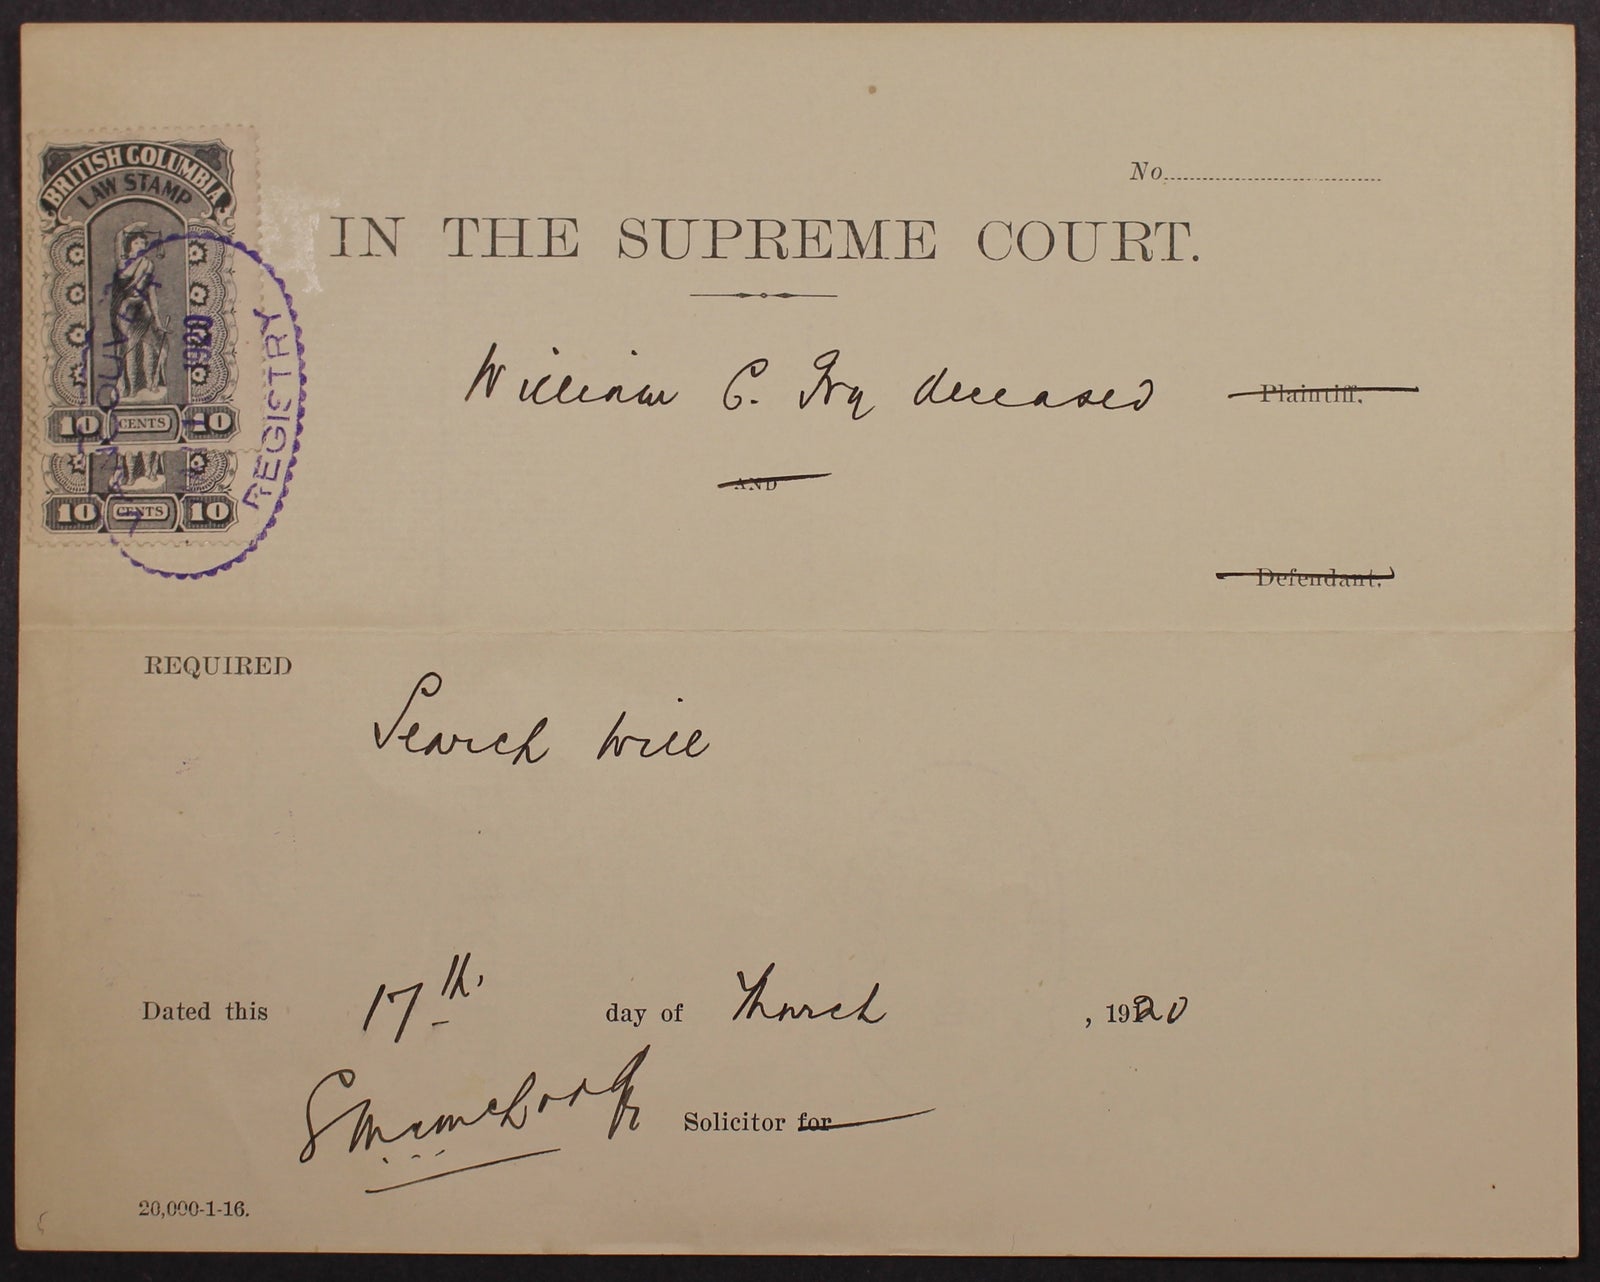 BRITISH COLUMBIA
LAW STAMP
10 CENTS 10
10 CENTS 10
VANCOUVER
1920
REGISTRY
No.
IN THE SUPREME COURT.
William C. Ivy deceased Plaintiff.
AND
Defendant.
REQUIRED
Search Will
Dated this 17th. day of March , 1920
Solicitor for
20,000-1-16.